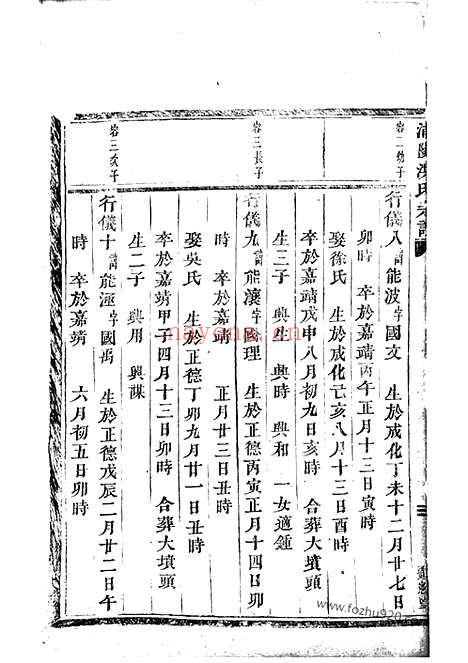 容二幼子
行儀八 諱能波 字國文 生於成化丁未十二月廿七日
卯時 卒於嘉靖丙午正月十二日寅時
娶徐氏 生於成化己亥八月十三日酉時
卒於嘉靖戊申八月初九日亥時
生三子 興生 興時 興和 一女適鍾
容三長子
行儀九 諱能漢 字國理 生於正德丙寅正月十四日卯
時 卒於嘉靖 正月廿三日丑時
娶吳氏 生於正德丁卯九月廿一日丑時
卒於嘉靖甲子四月十三日卯時 合葬大墳頭
生二子 興用 興謀
容三次子
行儀十 諱能 字國禹 生於正德戊辰二月廿二日午
時 卒於嘉靖 六月初五日卯時
nayona.cn
www.fozhu920.com